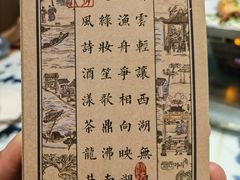 雲輕讓西湖無
漁舟爭相向映湖
綠妝笙歌鼎沸
風詩酒漾茶龍井